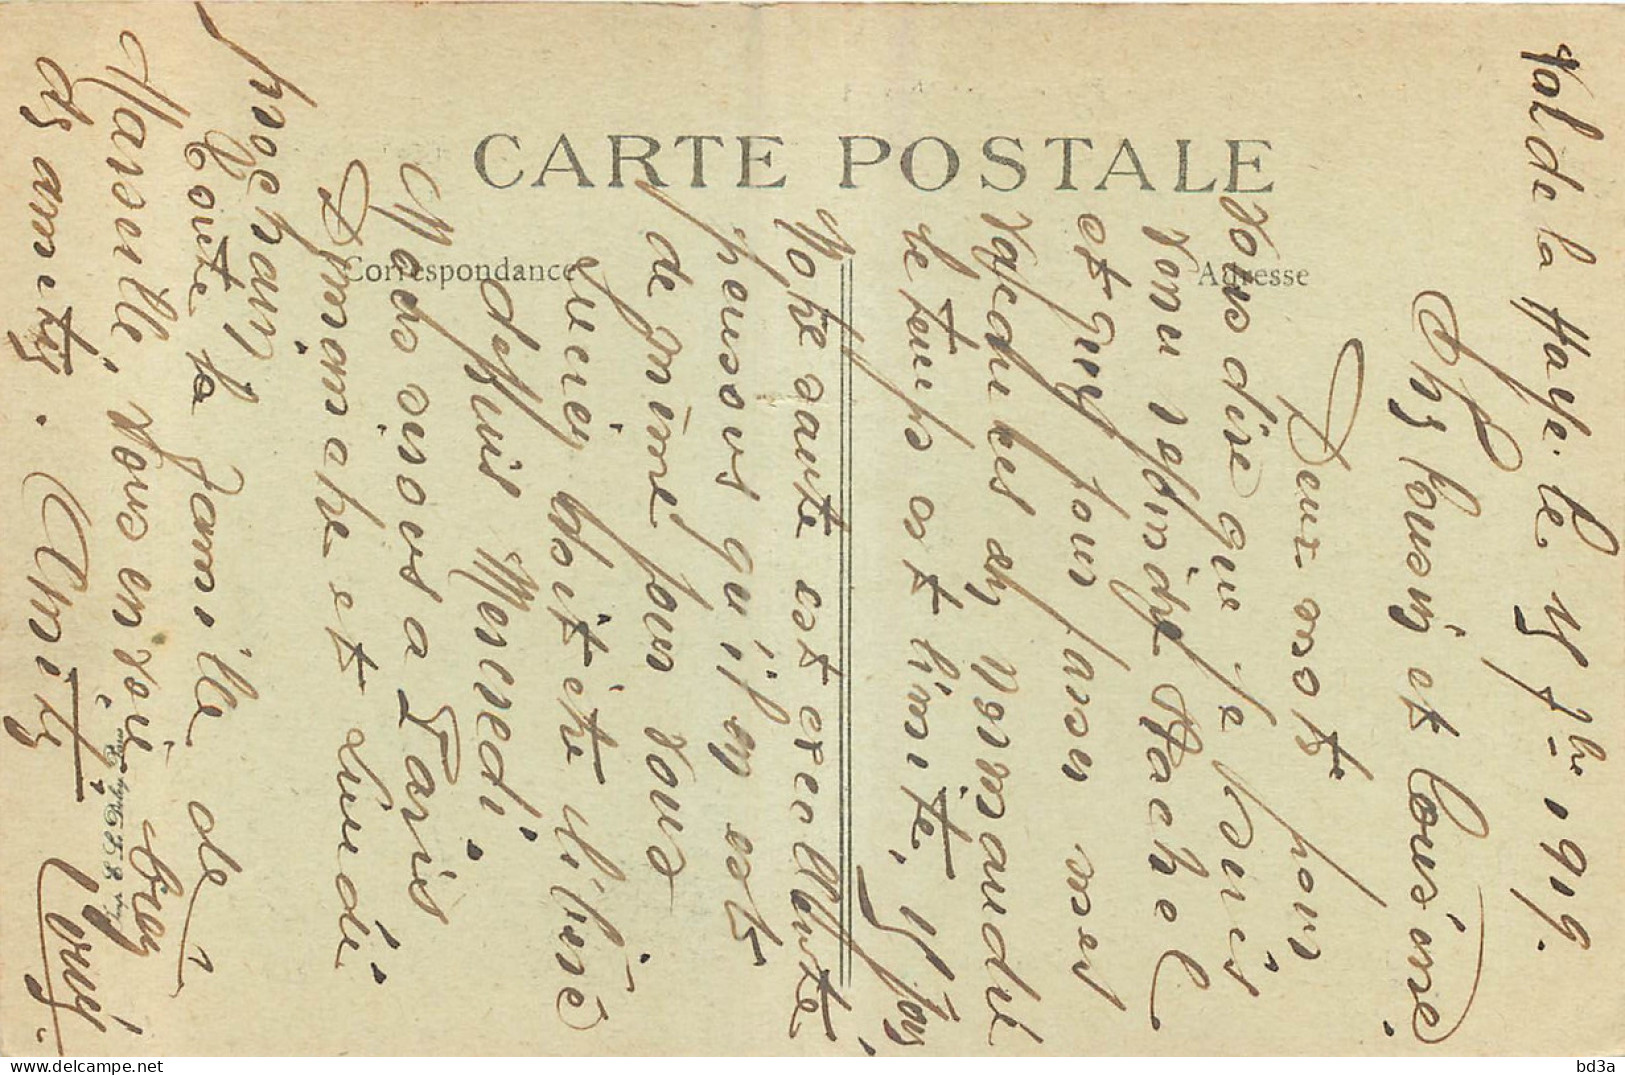 CARTE POSTALE
Correspondance
Adresse
Val de la Haye. le 15 7bre 1919.
Chz Cousin et Cousine
Deux mots pour
vous dire que je suis
venu rejoindre Rachel
et Guy pour passer mes
vacances en Normandie
le temps est limité, 15 jours
Notre santé est excellente
pensons qu'il en est
de même pour vous
Lucien doit être libéré
depuis Mercredi.
Nous serons a Paris
Dimanche et Lundi
prochain
Toute la famille de
Marseille, vous envoie bien
des amitiés.